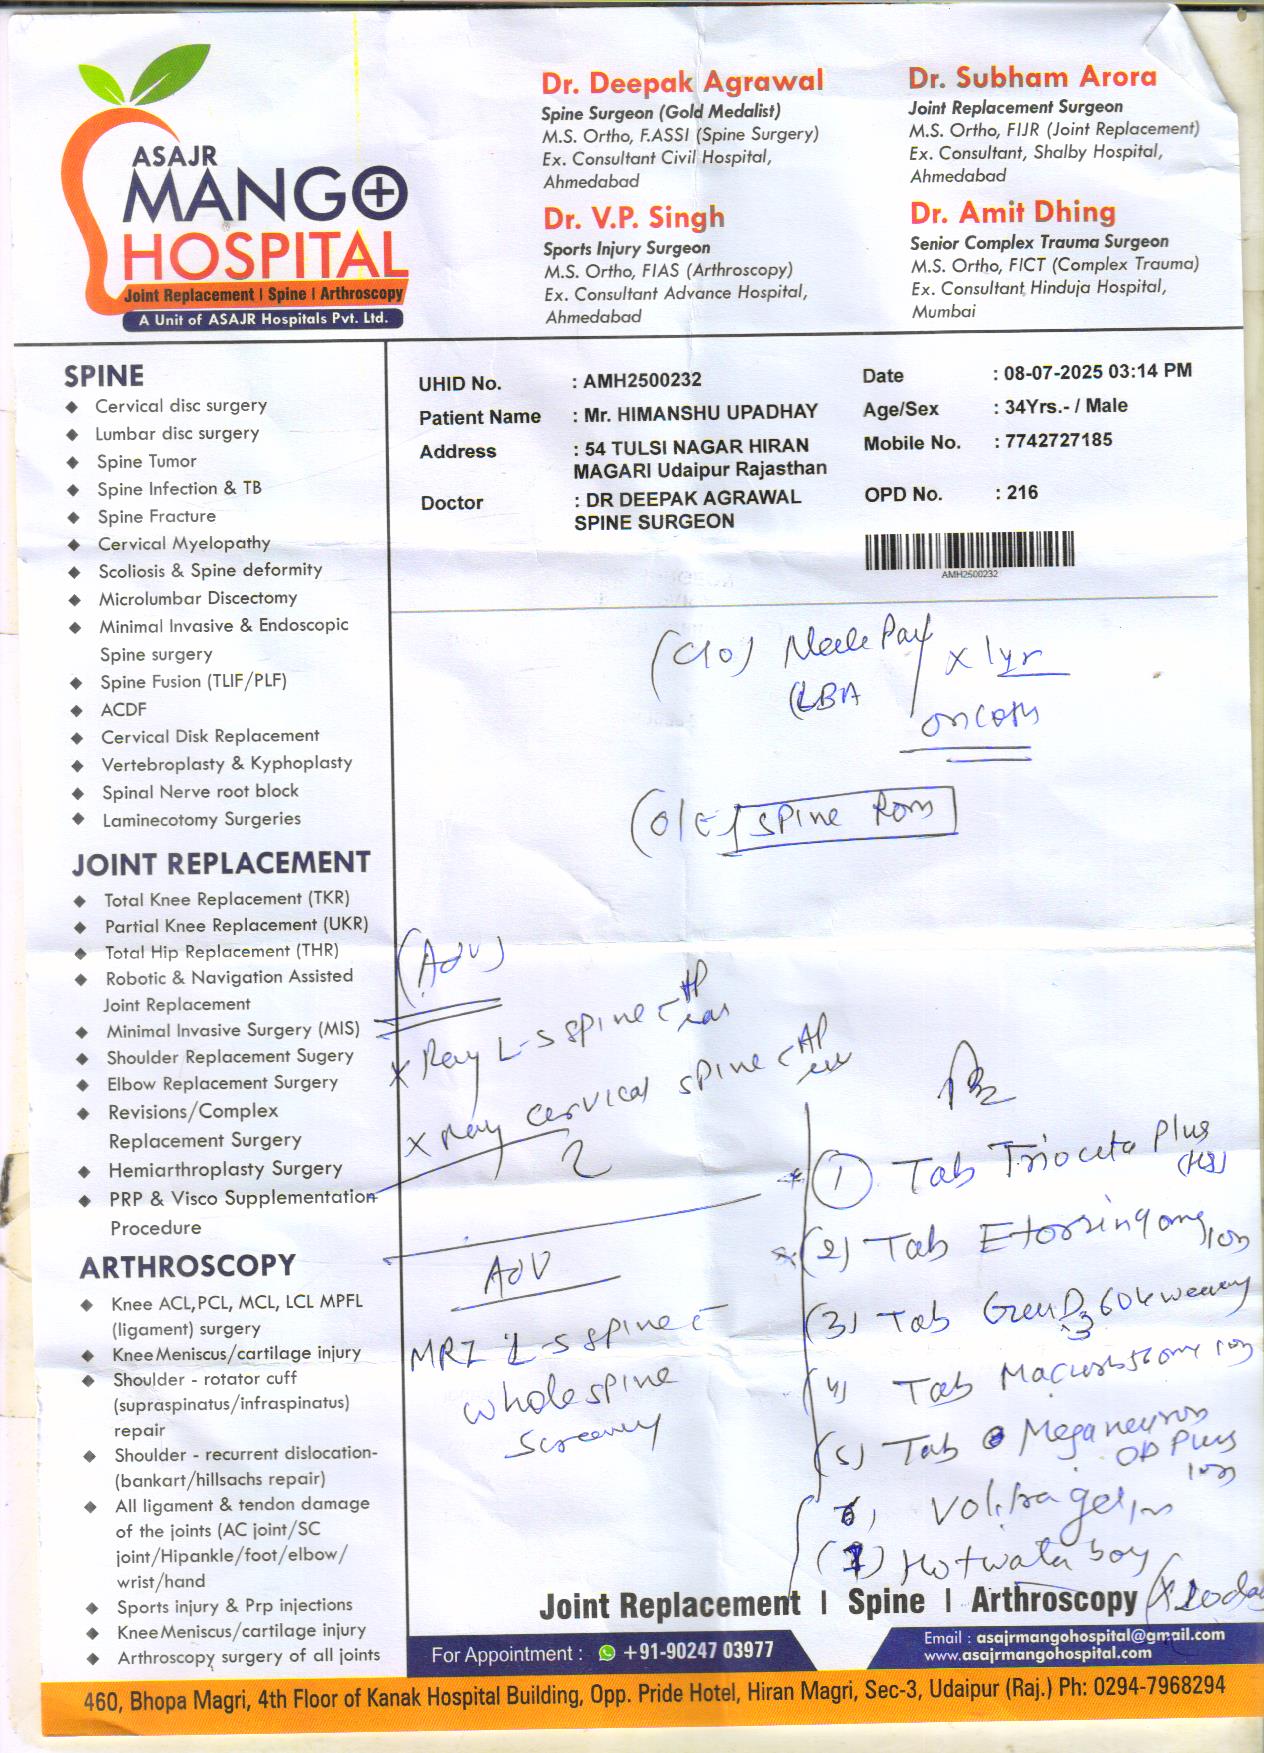 ASAJR
MANGO
HOSPITAL
Joint Replacement | Spine | Arthroscopy
A Unit of ASAJR Hospitals Pvt. Ltd.
Dr. Deepak Agrawal
Spine Surgeon (Gold Medalist)
M.S. Ortho, F.ASSI (Spine Surgery)
Ex. Consultant Civil Hospital,
Ahmedabad
Dr. V.P. Singh
Sports Injury Surgeon
M.S. Ortho, FIAS (Arthroscopy)
Ex. Consultant Advance Hospital,
Ahmedabad
Dr. Subham Arora
Joint Replacement Surgeon
M.S. Ortho, FIJR (Joint Replacement)
Ex. Consultant, Shalby Hospital,
Ahmedabad
Dr. Amit Dhing
Senior Complex Trauma Surgeon
M.S. Ortho, FICT (Complex Trauma)
Ex. Consultant Hinduja Hospital,
Mumbai
SPINE
Cervical disc surgery
Lumbar disc surgery
Spine Tumor
Spine Infection & TB
Spine Fracture
Cervical Myelopathy
Scoliosis & Spine deformity
Microlumbar Discectomy
Minimal Invasive & Endoscopic
Spine surgery
Spine Fusion (TLIF/PLF)
ACDF
Cervical Disk Replacement
Vertebroplasty & Kyphoplasty
Spinal Nerve root block
Laminecotomy Surgeries
JOINT REPLACEMENT
Total Knee Replacement (TKR)
Partial Knee Replacement (UKR)
Total Hip Replacement (THR)
Robotic & Navigation Assisted
Joint Replacement
Minimal Invasive Surgery (MIS)
Shoulder Replacement Sugery
Elbow Replacement Surgery
Revisions/Complex
Replacement Surgery
Hemiarthroplasty Surgery
PRP & Visco Supplementation
Procedure
ARTHROSCOPY
Knee ACL,PCL, MCL, LCL MPFL
(ligament) surgery
Knee Meniscus/cartilage injury
Shoulder - rotator cuff
(supraspinatus/infraspinatus)
repair
Shoulder - recurrent dislocation-
(bankart/hillsachs repair)
All ligament & tendon damage
of the joints (AC joint/SC
joint/Hipankle/foot/elbow/
wrist/hand
Sports injury & Prp injections
Knee Meniscus/cartilage injury
Arthroscopy surgery of all joints
UHID No. : AMH2500232
Patient Name : Mr. HIMANSHU UPADHAY
Address : 54 TULSI NAGAR HIRAN
MAGARI Udaipur Rajasthan
Doctor : DR DEEPAK AGRAWAL
SPINE SURGEON
Date : 08-07-2025 03:14 PM
Age/Sex : 34Yrs.- / Male
Mobile No. : 7742727185
OPD No. : 216
AMH2500232
(C/O)
x 1yr
LBA
(O/E) Spine Rom
(Adv)
X Ray L-S spine AP
X Ray cervical spine AP
Rx
(1) Tab Trioceta Plus
(HS)
(2) Tab
(3) Tab D3 60k
(4) Tab
(5) Tab Meganeuron
OD Plus
6) gel
(7) Hot water
Adv
MRI L-S spine
whole spine
Joint Replacement | Spine | Arthroscopy
For Appointment : +91-90247 03977
Email : asajrmangohospital@gmail.com
www.asajrmangohospital.com
460, Bhopa Magri, 4th Floor of Kanak Hospital Building, Opp. Pride Hotel, Hiran Magri, Sec-3, Udaipur (Raj.) Ph: 0294-7968294